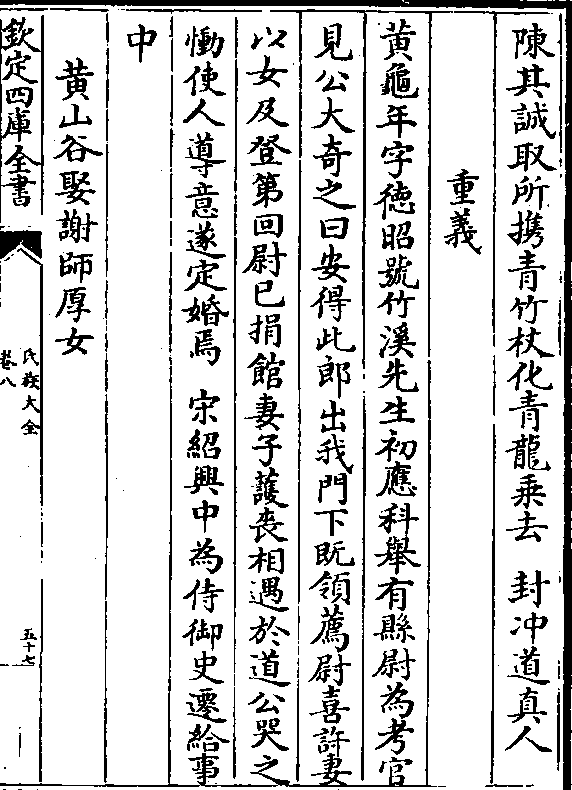 陳其誠取所攜青竹杖化青龍乘去　封冲道真人
重義
黄龜年字徳昭號竹溪先生初應科舉有縣尉為考官
見公大奇之曰安得此郎出我門下旣領薦尉喜許妻
以女及登第回尉已捐館妻子護喪相遇於道公哭之
慟使人導意遂定婚焉　宋紹興中為侍御史遷給事
中
黄山谷娶謝師厚女
欽定四庫全書
氏族大全
卷八
五十七